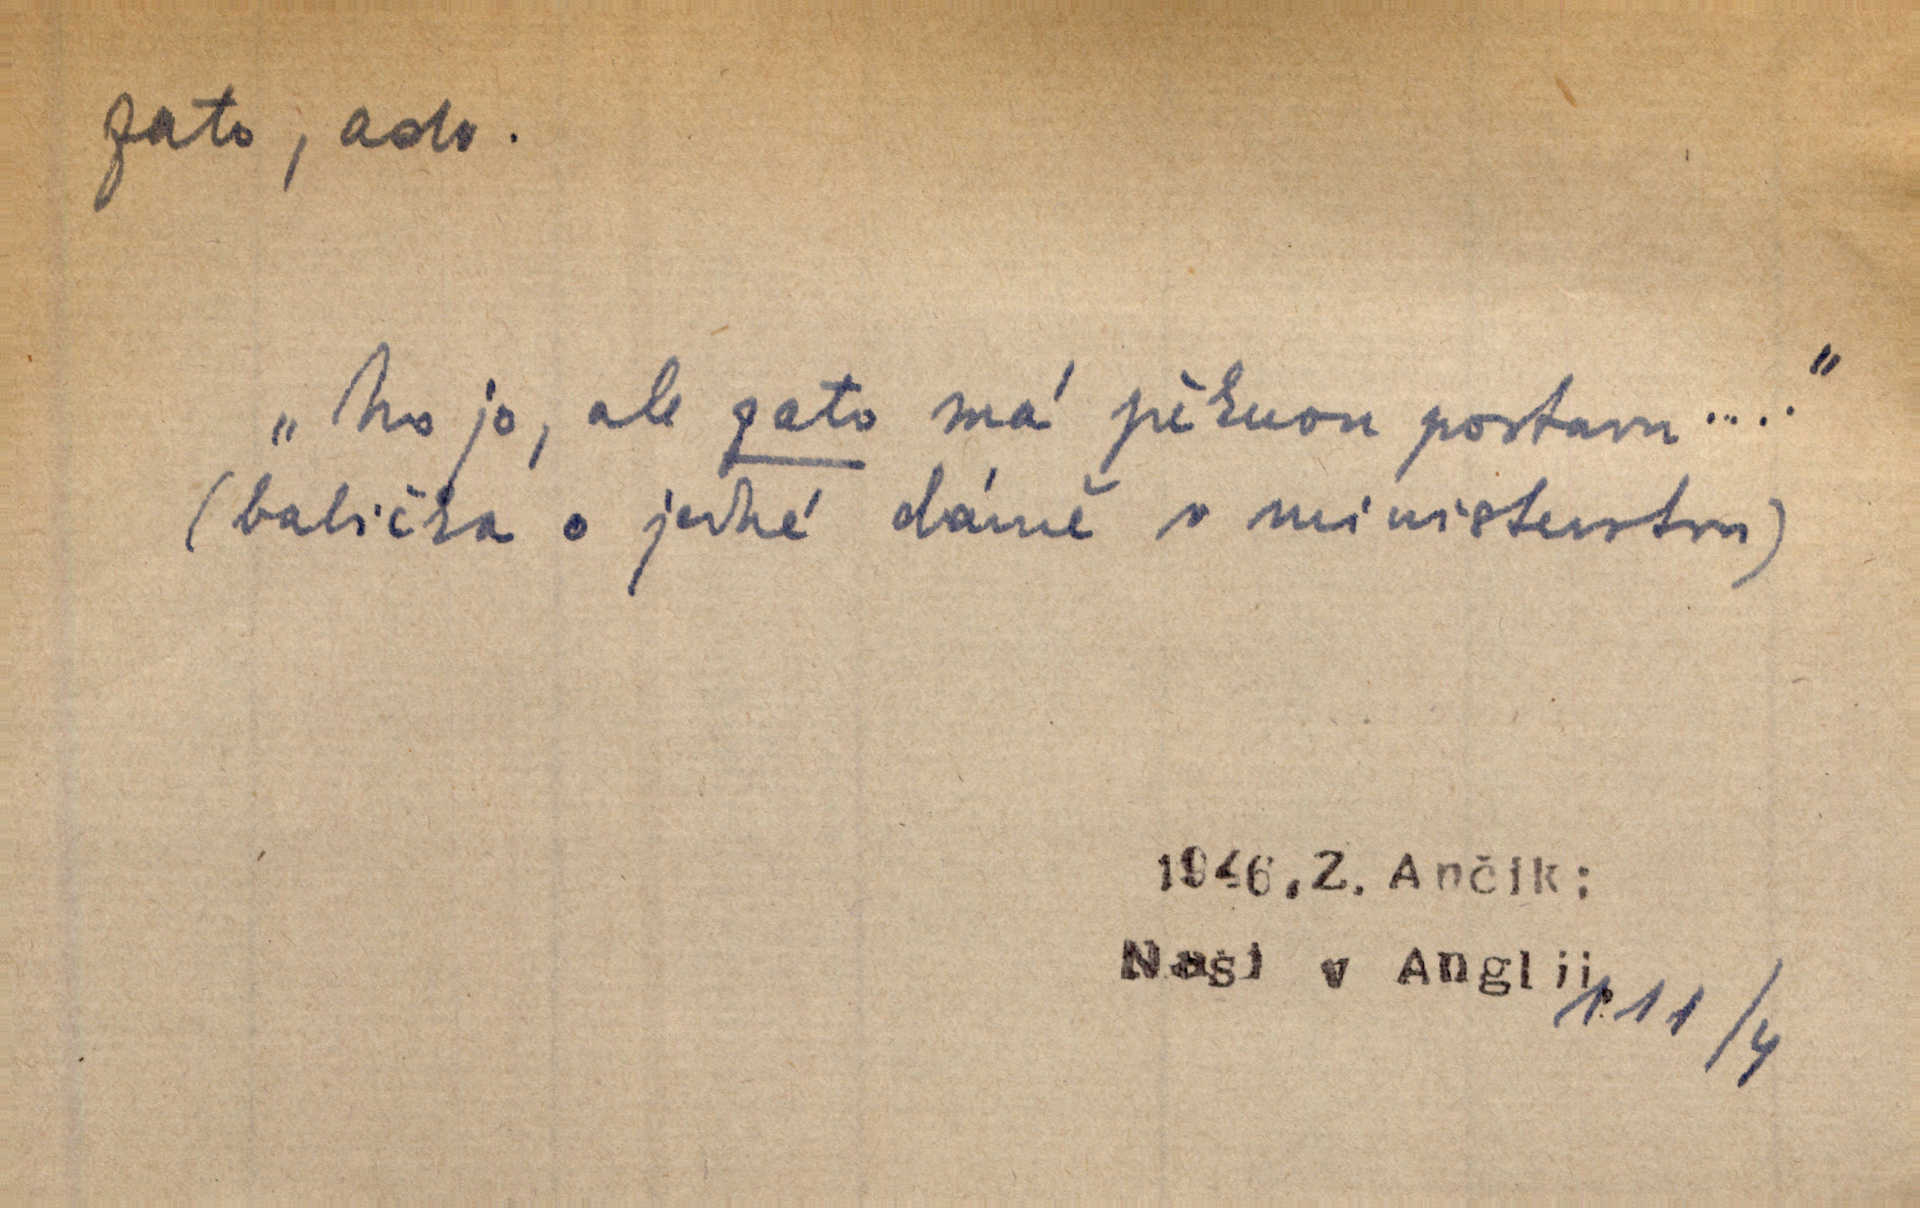 zato, adv.
„No jo, ale zato má pěknou postavu...."
(babička o jedné dámě v ministerstvu)
1946, Z. Ančík:
Naši v Anglii,
111/4